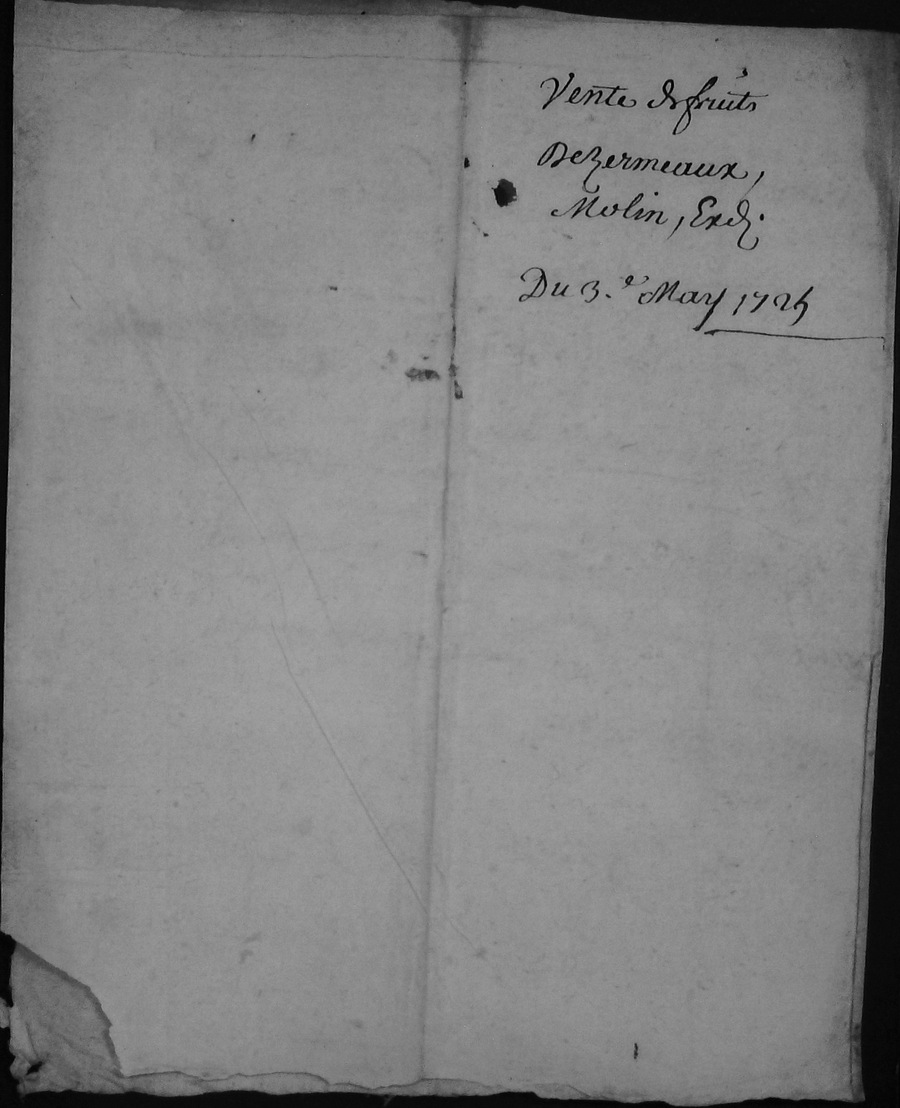 Vente de fruits
Dezermeaux,
Molin, Exd.
Du 3.e May 1725